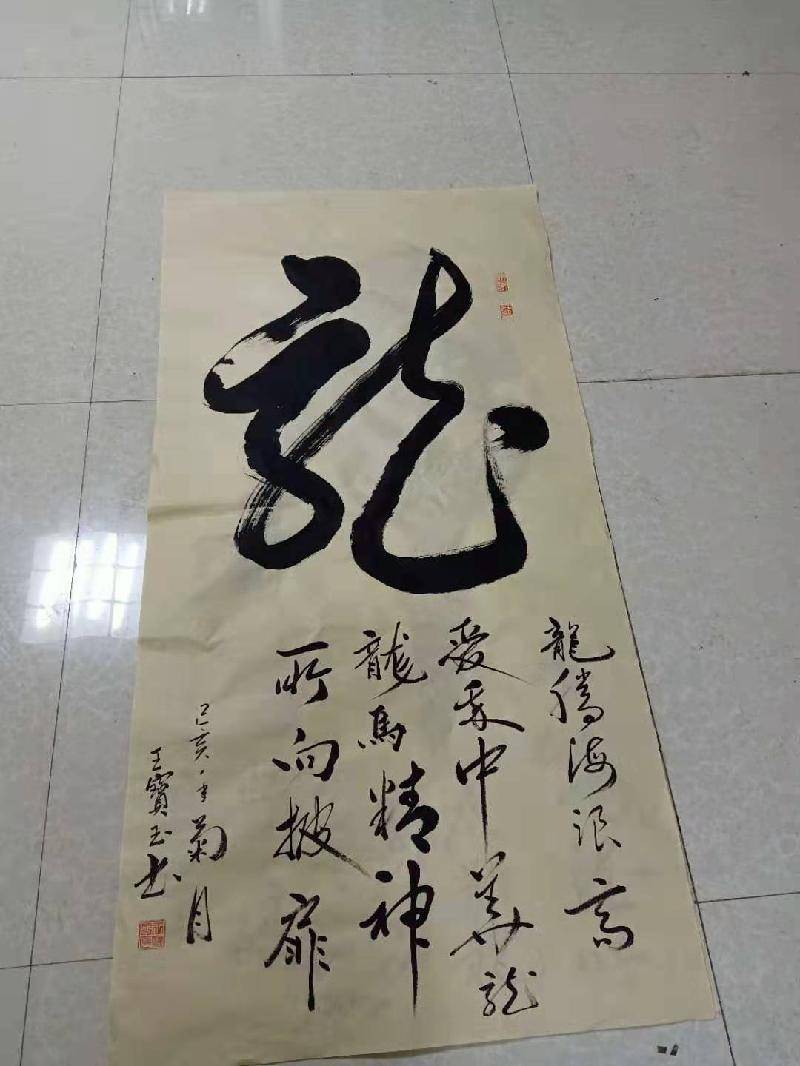 龍
龍騰海浪高
愛我中華龍
龍馬精神
所向披靡
己亥年菊月
王寶玉书